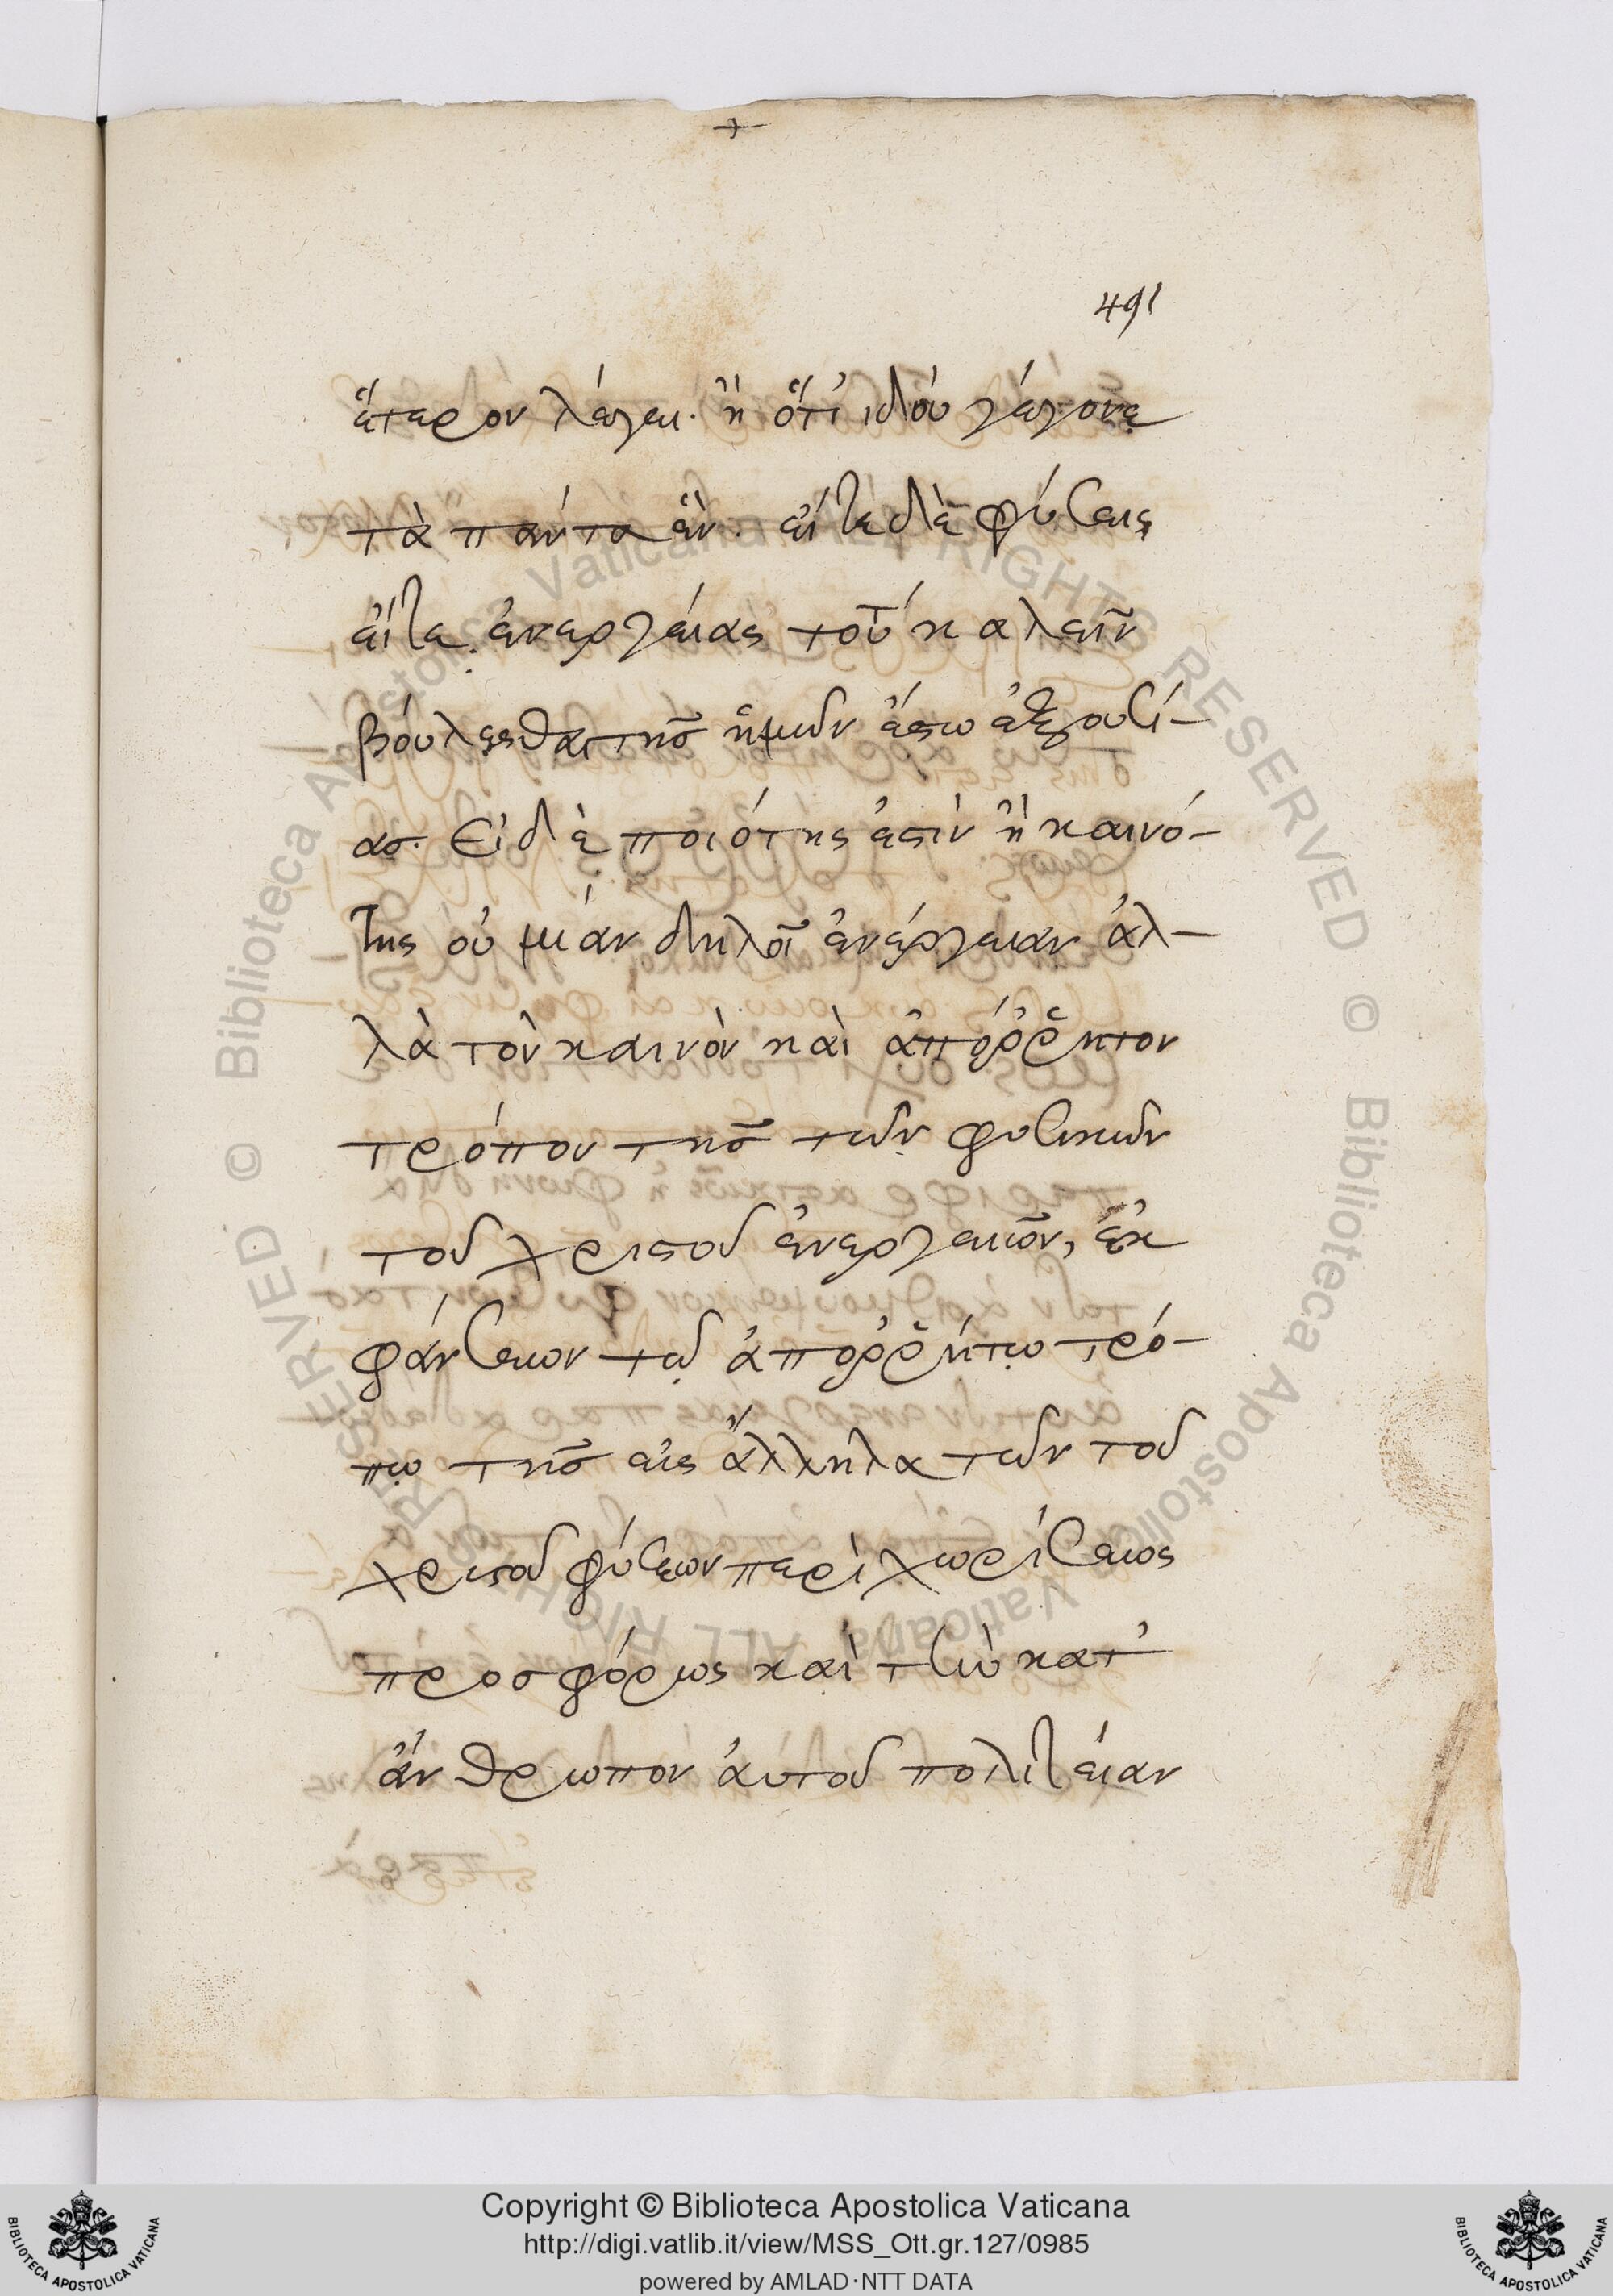 491
ἕτερον λέγει. ἢ ὅτι ἰδού γέγονε
τὰ πάντα ἕν. εἴτε δὲ φύσεις
εἴτε ἐνεργείας τοῦ καλεῖν
βούλεσθαι τῆς ἡμῶν ἔστω ἐξουσί-
ας. Εἰ δὲ ποιότης ἐστὶν ἡ καινό-
της οὐ μίαν δηλοῖ ἐνέργειαν ἀλ-
λὰ τὸν καινὸν καὶ ἀπόῤῥητον
τρόπον τῆς τῶν φυσικῶν
τοῦ χριστοῦ ἐνεργειῶν, ἐκ
φάνσεων τῷ ἀποῤῥήτω τρό-
πω τῆς εἰς ἄλληλα τῶν τοῦ
χριστοῦ φύσεων περὶ χωρίσεως
προσφόρως καὶ τὴν κατ'
ἄνθρωπον ἀυτοῦ πολιτείαν
Copyright © Biblioteca Apostolica Vaticana
http://digi.vatlib.it/view/MSS_Ott.gr.127/0985
powered by AMLAD·NTT DATA
BIBLIOTECA APOSTOLICA VATICANA
BIBLIOTECA APOSTOLICA VATICANA
© Biblioteca Apostolica Vaticana ALL RIGHTS RESERVED
© Biblioteca Apostolica Vaticana ALL RIGHTS RESERVED